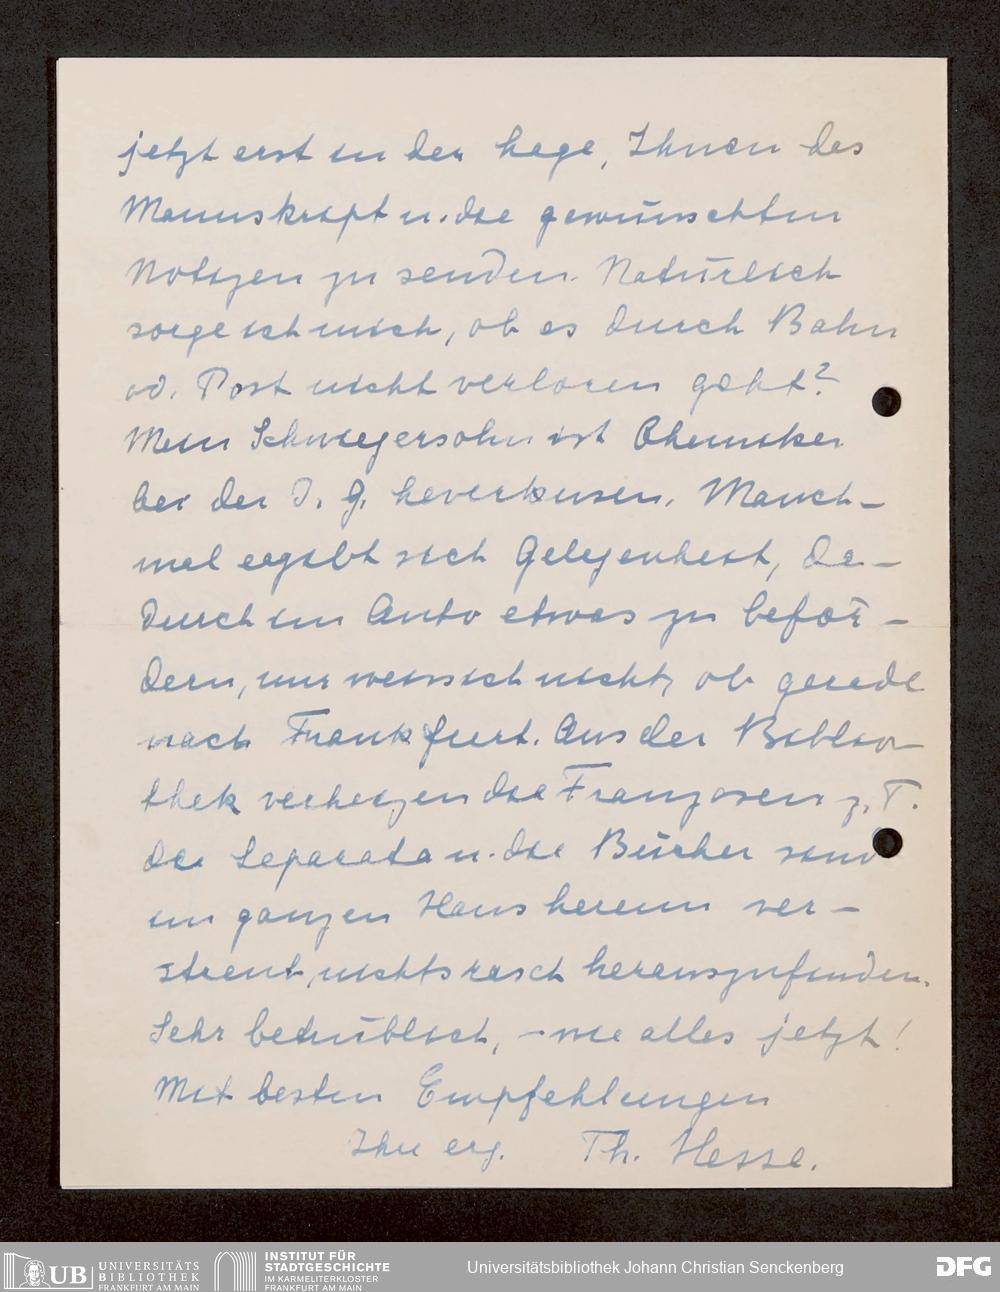 jetzt erst in der Lage, Ihnen das
Manuskript u. die gewünschten
Notizen zu senden. Natürlich
sorge ich mich, ob es durch Bahn
od. Post nicht verloren geht?
Mein Schwiegersohn ist Chemiker
bei der I. G. Leverkusen. Manch-
mal ergibt sich Gelegenheit, da-
durch im Auto etwas zu beför-
dern, nur weiss ich nicht, ob gerade
nach Frankfurt. Aus der Biblio-
thek verheizen die Franzosen z. T.
die Separata u. die Bücher sind
im ganzen Haus herum ver-
streut, nichts rasch herauszufinden.
Sehr betrüblich, – wie alles jetzt!
Mit besten Empfehlungen
Ihre erg. Th. Hesse.
UB UNIVERSITÄTS
BIBLIOTHEK
FRANKFURT AM MAIN
INSTITUT FÜR
STADTGESCHICHTE
IM KARMELITERKLOSTER
FRANKFURT AM MAIN
Universitätsbibliothek Johann Christian Senckenberg
DFG